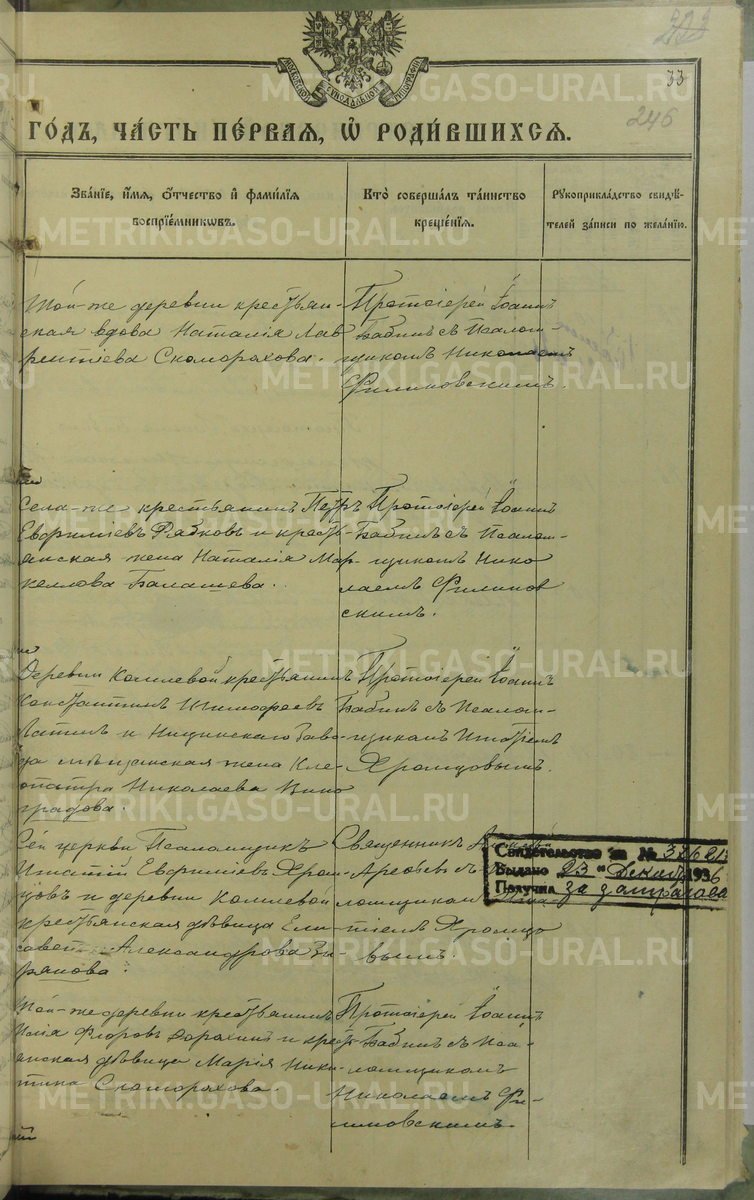 МОСКОВСКОЙ СѴНОДАЛЬНОЙ ТИПОГРАФІИ
33
246
ГОДЪ, ЧАСТЬ ПЕРВАЯ, Ѡ РОДИВШИХСЯ.
Званіе, имя, отчество и фамилія воспріемниковъ.
Кто совершалъ таинство крещенія.
Рукоприкладство свидѣтелей записи по желанію.
Той-же деревни крестьян-
ская вдова Наталія Лав
рентіева Скоморохова.
Протоіерей Іоаннъ
Бабинъ съ Псалом-
щикомъ Николаемъ
Филиновскимъ.
Села-же крестьянинъ Петръ
Евфиміевъ Рябковъ и кресть-
янская жена Наталія Мар-
келлова Балашева.
Протоіерей Іоаннъ
Бабинъ съ Псалом-
щикомъ Нико
лаемъ Филинов
скимъ.
Деревни Комлевой крестьянинъ
Константинъ Тимофеевъ
и Ницинскаго Заво-
да мѣщанская жена Кле-
опатра Николаева Вино
градова.
Протоіерей Іоаннъ
Бабинъ съ Псалом-
щикомъ Игнатіемъ
Хромцовымъ.
Сей церкви Псаломщикъ
Игнатій Евфиміевъ Хром-
цовъ и деревни Комлевой
крестьянская дѣвица Ели
савета Александрова Зы-
рянова.
Священникъ
Арефьевъ съ
ломщикомъ Игна-
тіемъ Хромцо
вымъ.
Свидетельство за № 37621
Выдано "23" Декаб 1936
Получил за
Той-же деревни крестьянинъ
Илія Федоровъ Дорохинъ и кресть-
янская дѣвица Марія Ники-
тина Скоморохова.
Протоіерей Іоаннъ
Бабинъ съ Пса-
ломщикомъ
Николаемъ Фи-
линовскимъ.
METRIKI.GASO-URAL.RU